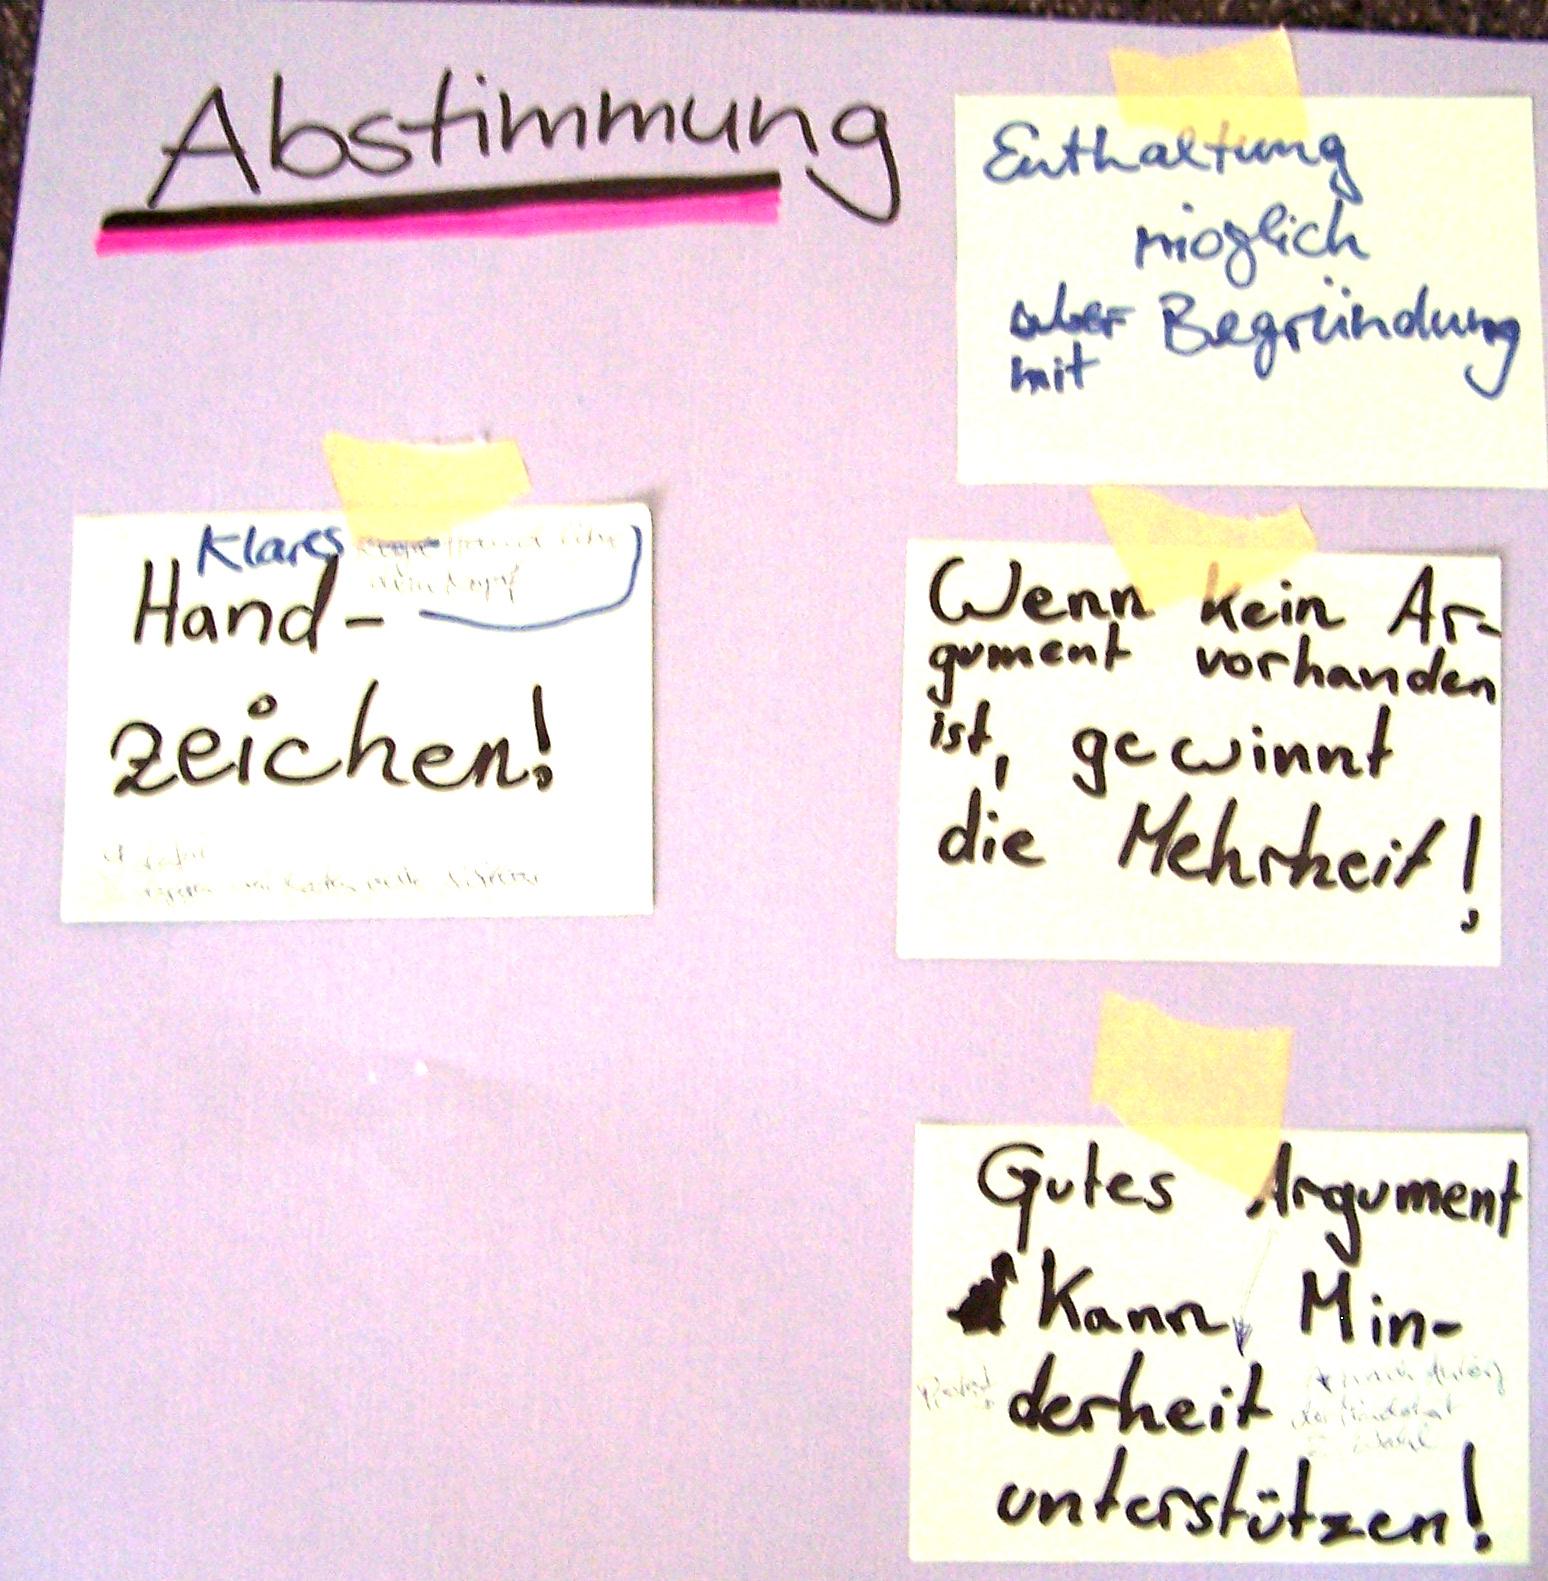 Abstimmung
Enthaltung
möglich
aber Begründung
mit
Klares
Hand-
zeichen!
Wenn kein Ar-
gument vorhanden
ist, gewinnt
die Mehrheit!
Gutes Argument
Kann Min-
derheit
unterstützen!